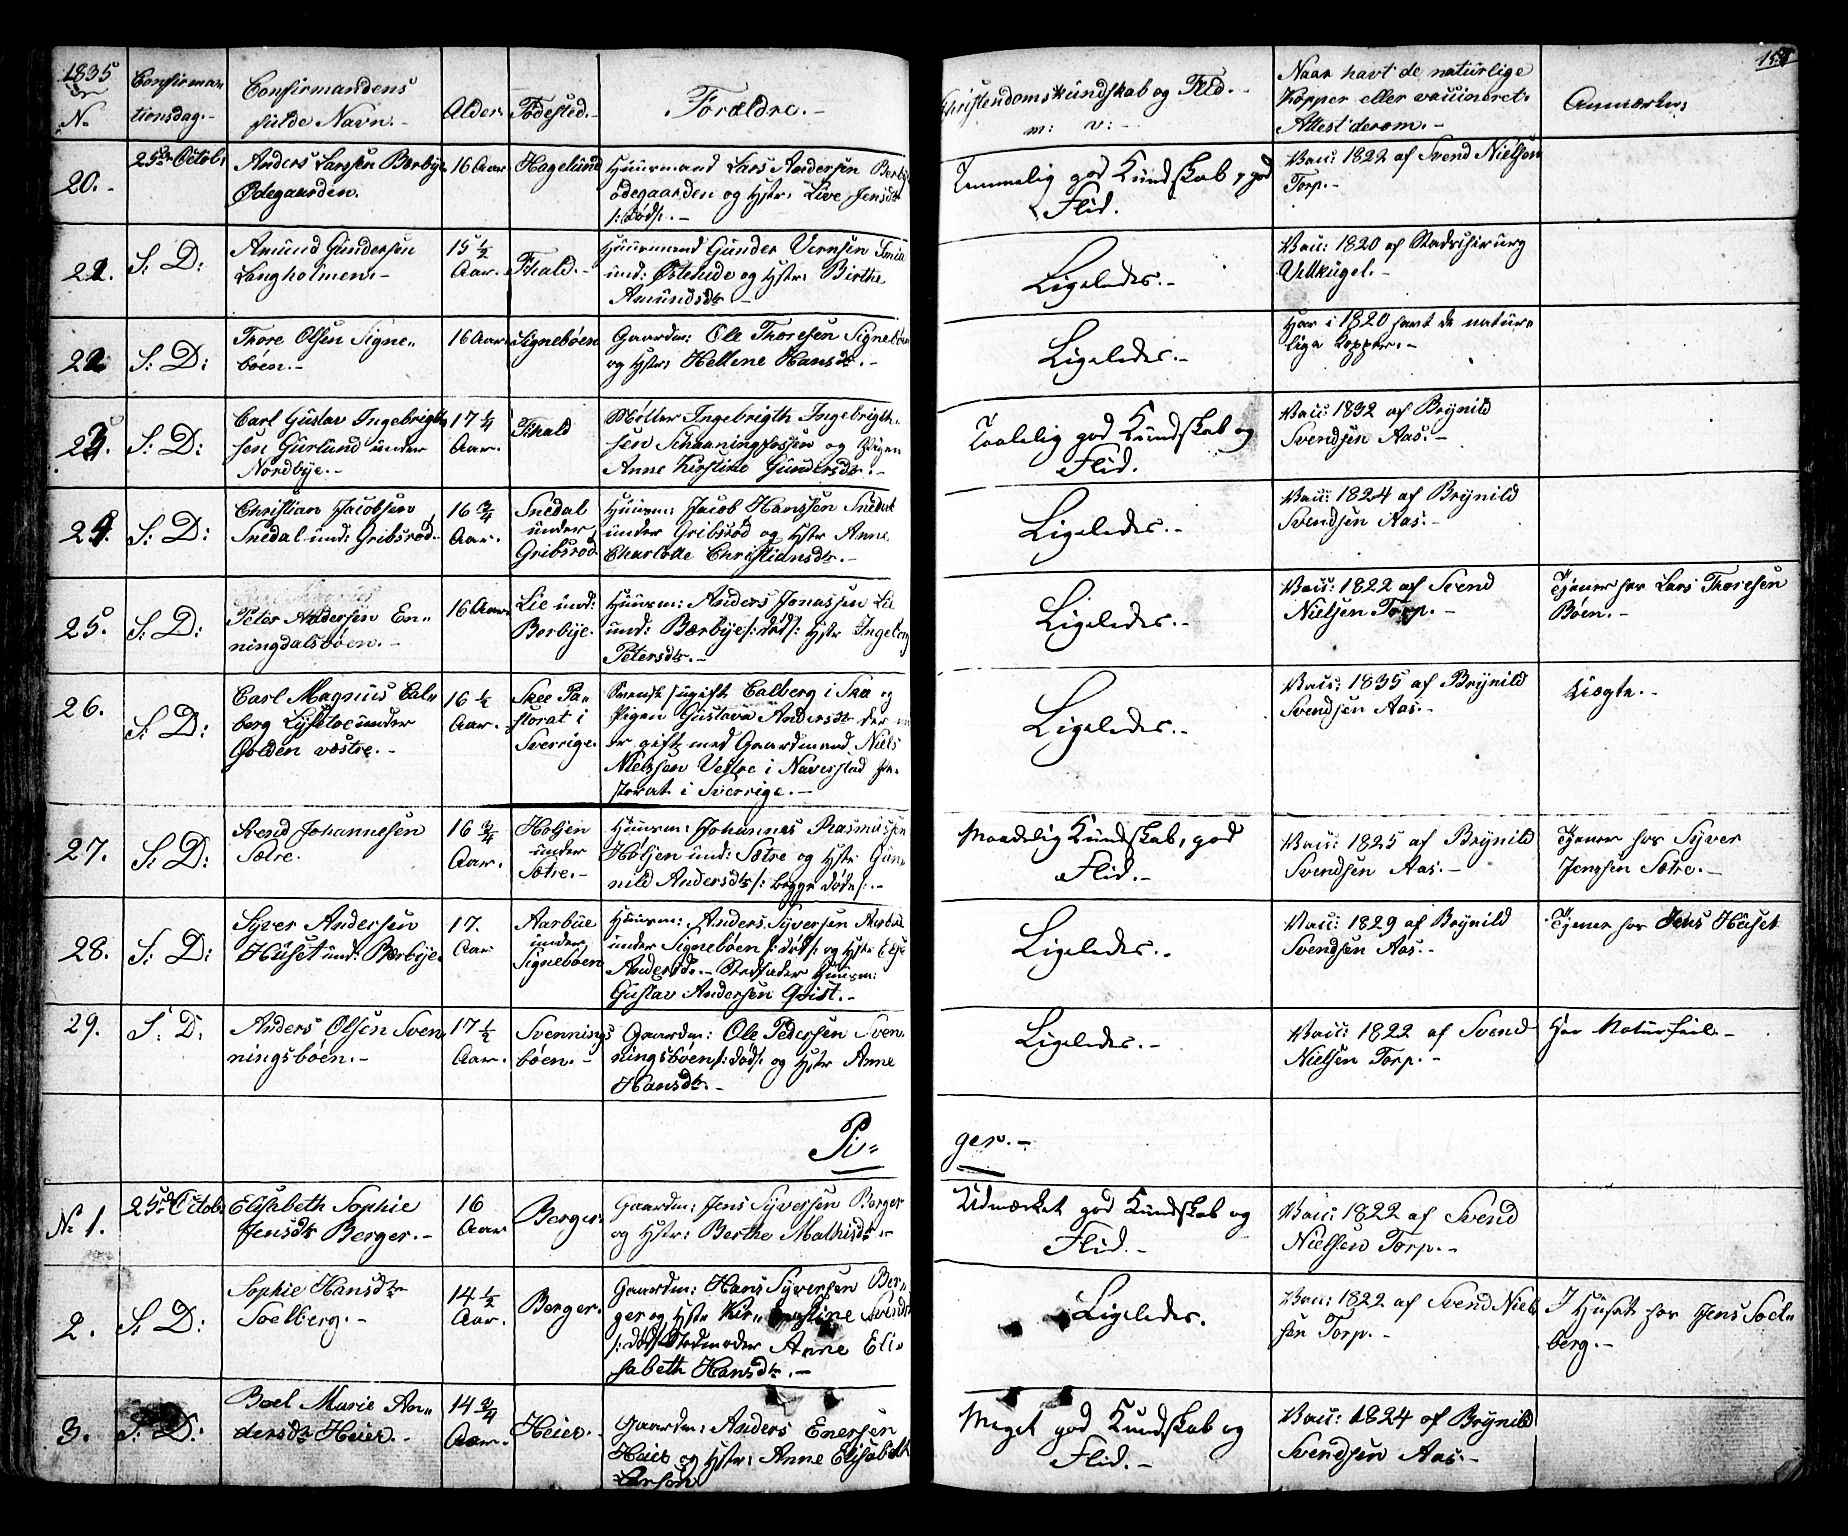 1835
154
No
Confirma-
tionsdag.-
Confirmandens
fulde Navn.-
Alder.
Fødested.-
Forældre.-
Christendomskundskab og Flid.-
m: v:-
Naar havt de naturlige
Kopper eller vaccineret.
Attest derom.-
Anmærkn:
20.-
25de Octob:
Anders Larssen Bærbye
Ødegaarden.
16 Aar
Hagelund
Huusmand Lars Andersen Bærby
ødegaarden og Hstr: Live Jensdtr
/: død :/.-
Temmelig god Kundskab, god
Flid.
Vacc: 1822 af Svend Nielsen
Torp.-
21.
S: D:
Amund Gundersen
Langholmen.-
15 1/2
Aar.-
Fhald.-
Huusmand Gunder
und: og Hstr: Birthe
Amundsdtr.-
Ligeledes.-
Vacc: 1820 af Stadschirurg
Vellkugel.-
22.
S: D:
Thore Olsen Signe-
bøen.-
16 Aar.
Signebøen
Gaardm: Ole Thoresen Signebøen
og Hstr: Hellene Hansdtr.-
Ligeledes.-
Har i 1820 havt de natur-
lige Kopper.-
23.
S: D:
Carl Gustav Ingebrigth-
sen Gurlund under
Nordbye.-
17 1/4
Aar.
Fhald
Møller Ingebrigth Ingebrigth-
sen Schaaningfossen og Pigen
Anne Kirstine Gundersdtr.-
Taalelig god Kundskab og
Flid.
Vacc: 1832 af Brynild
Svendsen Aas.-
24.
S: D:
Christian Jacobsen
Snedal und: Gribsrød.
16 3/4
Aar.
Snedal
under
Gribsrød
Huusm: Jacob Hanssen Snedal
under Gribsrød og Hstr Anne
Charlotte Christiansdtr.-
Ligeledes.-
Vacc: 1824 af Brynild
Svendsen Aas.-
25.
S: D:
Peter Andersen En-
ningdalsbøen.-
16 Aar.
Lie und:
Berbye.
Huusm: Anders Jonassen Lie
und: Bærbye /: død :/ Hstr Ingeborg
Petersdtr.-
Ligeledes.-
Vacc: 1822 af Svend
Nielsen Torp.-
Tjener hos Lars Thoresen
Bøen.-
26.
S: D:
Carl Magnus Cal-
berg Lysetoe under
Holden væstre.-
16 1/2
Aar.
Skee Pa-
storat i
Sverrige.
Svensk /: ugift Calberg i Skee og
Pigen Gustava Andersdtr der nu
er gift med Gaardmand Niels
Nielssen Vestre i Naverstad Pa-
storat i Sverrige.-
Ligeledes.-
Vacc: 1835 af Brynild
Svendsen Aas.-
Uægte.-
27.
S: D:
Svend Johannesen
Sætre.
16 3/4
Aar.
Holjen
under
Sætre.-
Huusm: Johannes Rasmussen
Holjen und: Sætre og Hstr: Gun-
nild Andersdtr /: begge døde :/.-
Maadelig Kundskab, god
Flid.-
Vacc: 1825 af Brynild
Svendsen Aas.-
Tjener hos Syver
Jenssen Sætre.-
28.
S: D:
Syver Andersen
Huset und: Bærbye.
17.
Aar
Aarbue
under
Signebøen
Huusm: Anders Syversen Aarbue
under Signebøen /: død :/ og Hstr Else
Andersdtr.- Stedfader Huusm:
Gustav Andersen Qvist.-
Ligeledes.-
Vacc: 1829 af Brynild
Svendsen Aas.-
Tjener hos Jens Huset
29.
S: D:
Anders Olsen Sven
ningsbøen.-
17 1/2
Aar.
Svennings
bøen.-
Gaardm: Ole Pedersen Sven-
ningsbøen /: død :/ og Hstr Anne
Hansdtr.-
Ligeledes.-
Vacc: 1822 af Svend
Nielsen Torp.-
Har Naturfeil.-
Pi-
ger.-
No 1.
25de Octob:
Elisabeth Sophie
Jensdtr Berger.-
16
Aar
Berger.
Gaardm: Jens Syversen Berger
og Hstr: Berthe Mathisdtr.-
Udmærket god Kundskab og
Flid.-
Vacc: 1822 af Svend
Nielsen Torp.-
2.
S: D:
Sophie Hansdtr
Soelberg.-
14 1/2
Aar.
Berger.
Gaardm: Hans Syversen Ber-
ger og Hstr Kirstine Svendsdtr
/: død :/ Stedmoder Anne Eli-
sabeth Hansdtr.-
Ligeledes.
Vacc: 1822 af Svend Niel
sen Torp.-
I Huset hos Jens Soel-
berg.-
3.
S: D:
Boel Marie An-
dersdtr Heier.-
14 3/4
Aar.
Heier.
Gaardm: Anders Enersen
Heier og Hstr: Anne Elisabeth
Larsdtr
Meget god Kundskab og
Flid.-
Vacc: 1824 af Brynild
Svendsen Aas.-